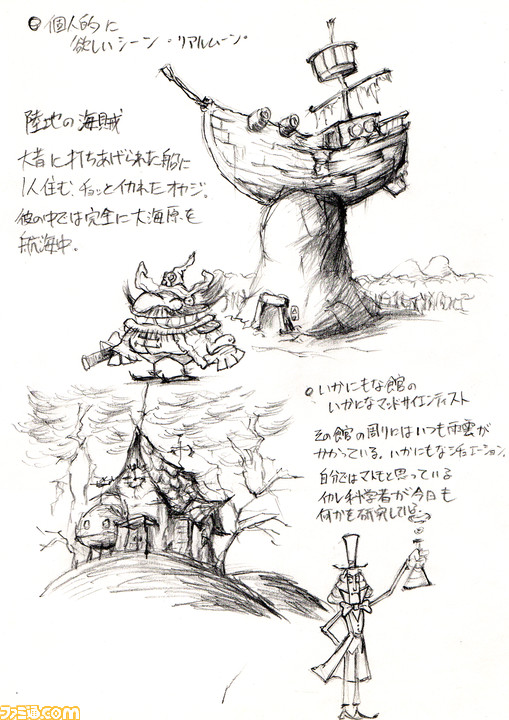 個人的に
欲しいシーン・リアルムーン。
陸地の海賊
大昔に打ちあげられた船に
1人住む、チョッとイカれたオヤジ。
彼の中では完全に大海原を
航海中。
いかにもな館の
いかにもなマッドサイエンティスト
その館の周りにはいつも雨雲が
かかっている。いかにもなシチュエーション。
自分ではマトモと思っている
イカレ科学者が今日も
何かを研究している。
ファミ通.com